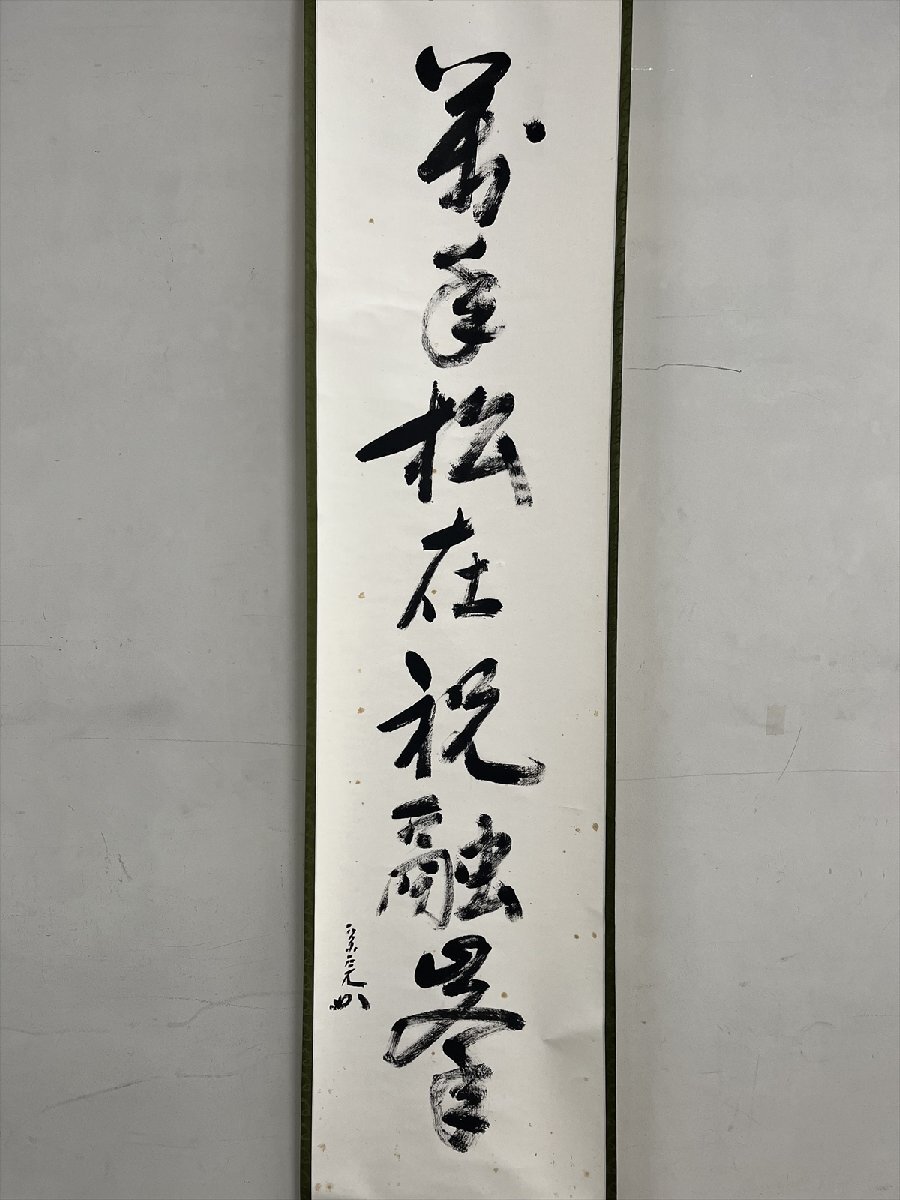 萬年松在祝融峯